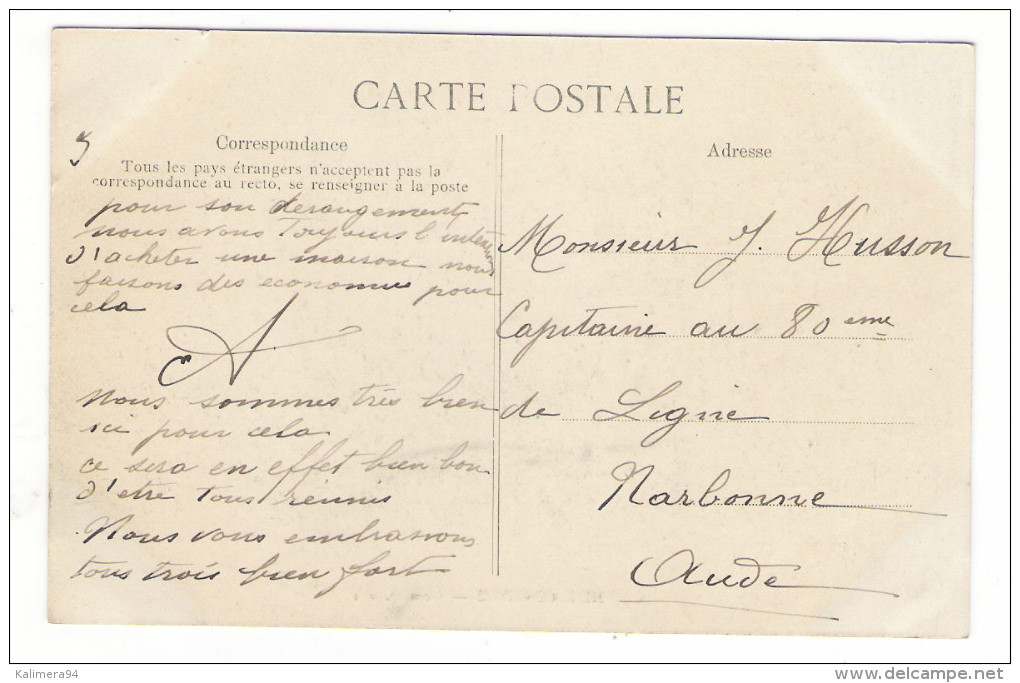 CARTE POSTALE
Correspondance
Tous les pays étrangers n'acceptent pas la
correspondance au recto, se renseigner à la poste
3
pour son derangement
nous avons Toujours l'intention
d'acheter une maison nous
faisons des economies pour
cela
A
Nous sommes très bien
ici pour cela
ce sera en effet bien bon
d'etre tous réunis
Nous vous embrassons
tous trois bien fort
Adresse
Monsieur J. Husson
Capitaine au 80 eme
de Ligne
Narbonne
Aude
Kalimera94
www.delcampe.net